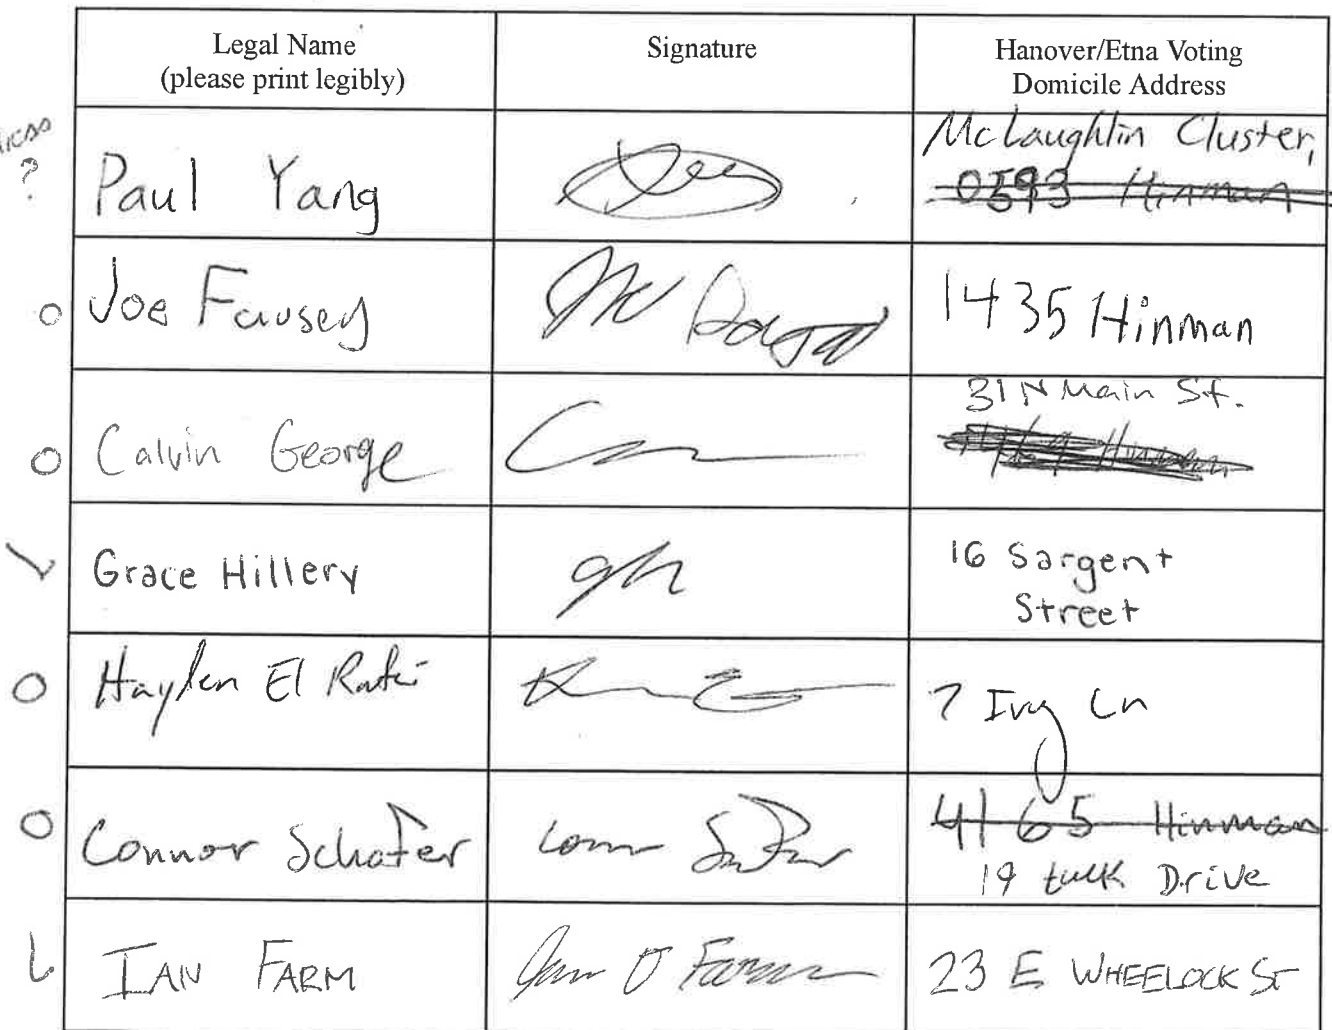 Legal Name
(please print legibly)
Signature
Hanover/Etna Voting
Domicile Address
?
Paul Yang
McLaughlin Cluster,
0593 Hinman
Joe Fausey
1435 Hinman
Calvin George
31 N Main St.
Hinman
Grace Hillery
gh
16 Sargent
Street
Hayden El Rafei
7 Ivy Ln
Connor Schafer
4165 Hinman
19 tuck Drive
IAN FARM
Ian O Farm
23 E WHEELOCK ST